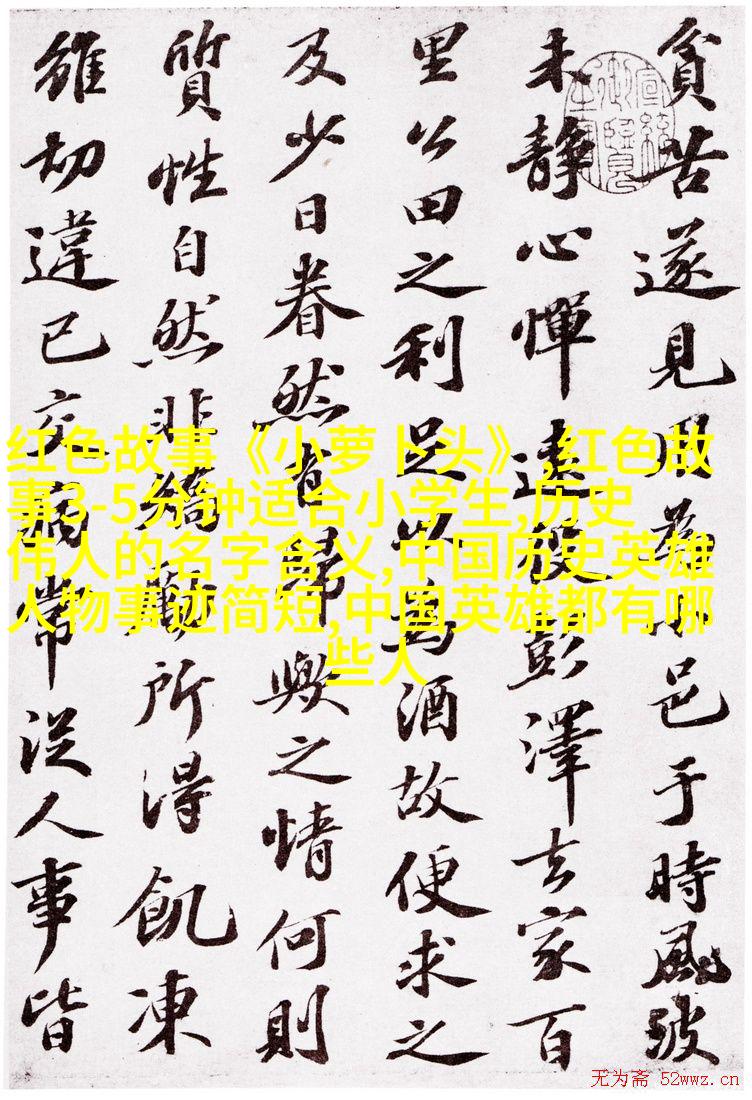 貧苦遂見用為小邑于時風波
未静心憚遠役彭澤去家百
里公田之利足以為酒故便求之
及少日眷然有歸歟之情何則
質性自然非矯勵所得飢凍
雖切違已交病常從人事皆
红色故事《小萝卜头》,红色故
事3-5分钟适合小学生,历史
伟人的名字含义,中国历史英雄
人物事迹简短,中国英雄都有哪
些人
无为斋 52wwz.cn